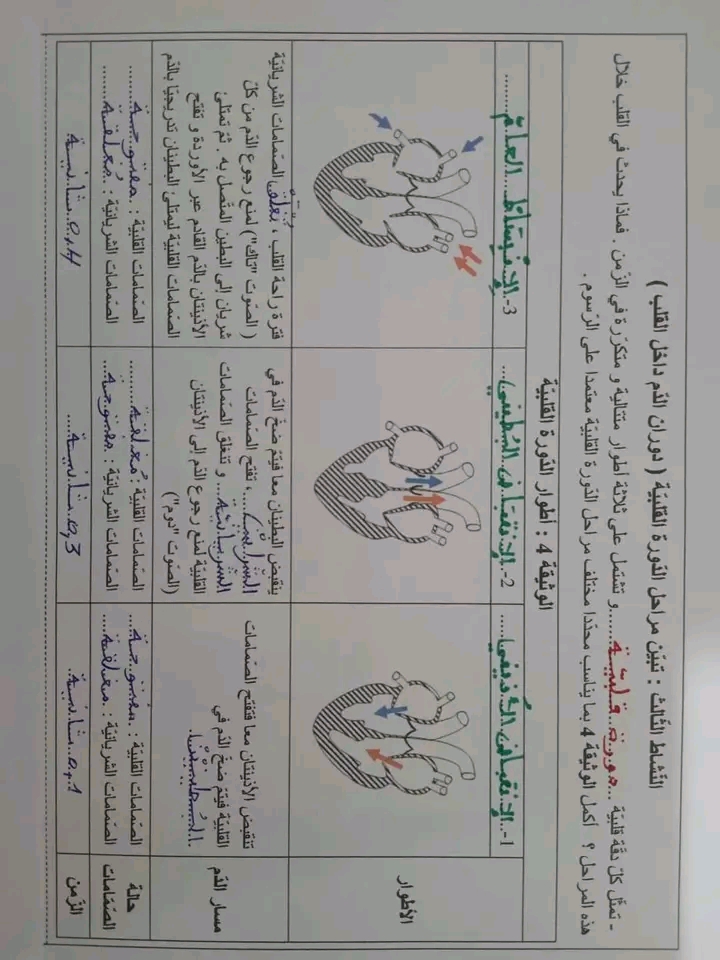 النشاط الثالث : تبيّن مراحل الدّورة القلبيّة ( دوران الدّم داخل القلب )
- تمثّل كلّ دقّة قلبيّة ...دورة قلبيّة...... و تشتمل على ثلاثة أطوار متتالية و متكرّرة في الزّمن . فماذا يحدث في القلب خلال
هذه المراحل ؟ أكمل الوثيقة 4 بما يناسب محدّدا مختلف مراحل الدّورة القلبيّة معتمدا على الرّسوم .
الوثيقة 4 : أطوار الدّورة القلبيّة
الأطوار
1-..الإنقباض الأُذيني...
2-..الإنقباض البُطيني...
3-..الإنبساط العام...
مسار الدّم
تنقبض الأذينتان معا فتفتح الصّمامات
القلبيّة فيتمّ ضخّ الدّم في
البُطينين.
ينقبض البطينان معا فيتمّ ضخّ الدّم في
الشرايين، تفتح الصّمامات
الشريانية... و تنغلق الصّمامات
القلبيّة لمنع رجوع الدّم إلى الأذينتان
(الصّوت "دوم")
فترة راحة القلب ، تُغلق الصّمامات الشريانيّة
( الصّوت "تاك") لمنع رجوع الدّم من كلّ
شريان إلى البطين المتّصل به . ثمّ تمتلئ
الأذينتان بالدّم القادم عبر الأوردة و تفتح
الصّمامات القلبيّة ليمتلئ البطينان تدريجيّا بالدّم
حالة
الصّمّامات
الصّمامات القلبيّة : مفتوحة....
الصّمامات الشريانيّة : مغلقة....
الصّمامات القلبيّة : مُغلقة........
الصّمامات الشريانيّة : مفتوحة....
الصّمامات القلبيّة : مفتوحة.......
الصّمامات الشريانيّة : مُغلقة.......
الزّمن
0,1 ثانية.
0,3 ثانية....
0,4 ثانية